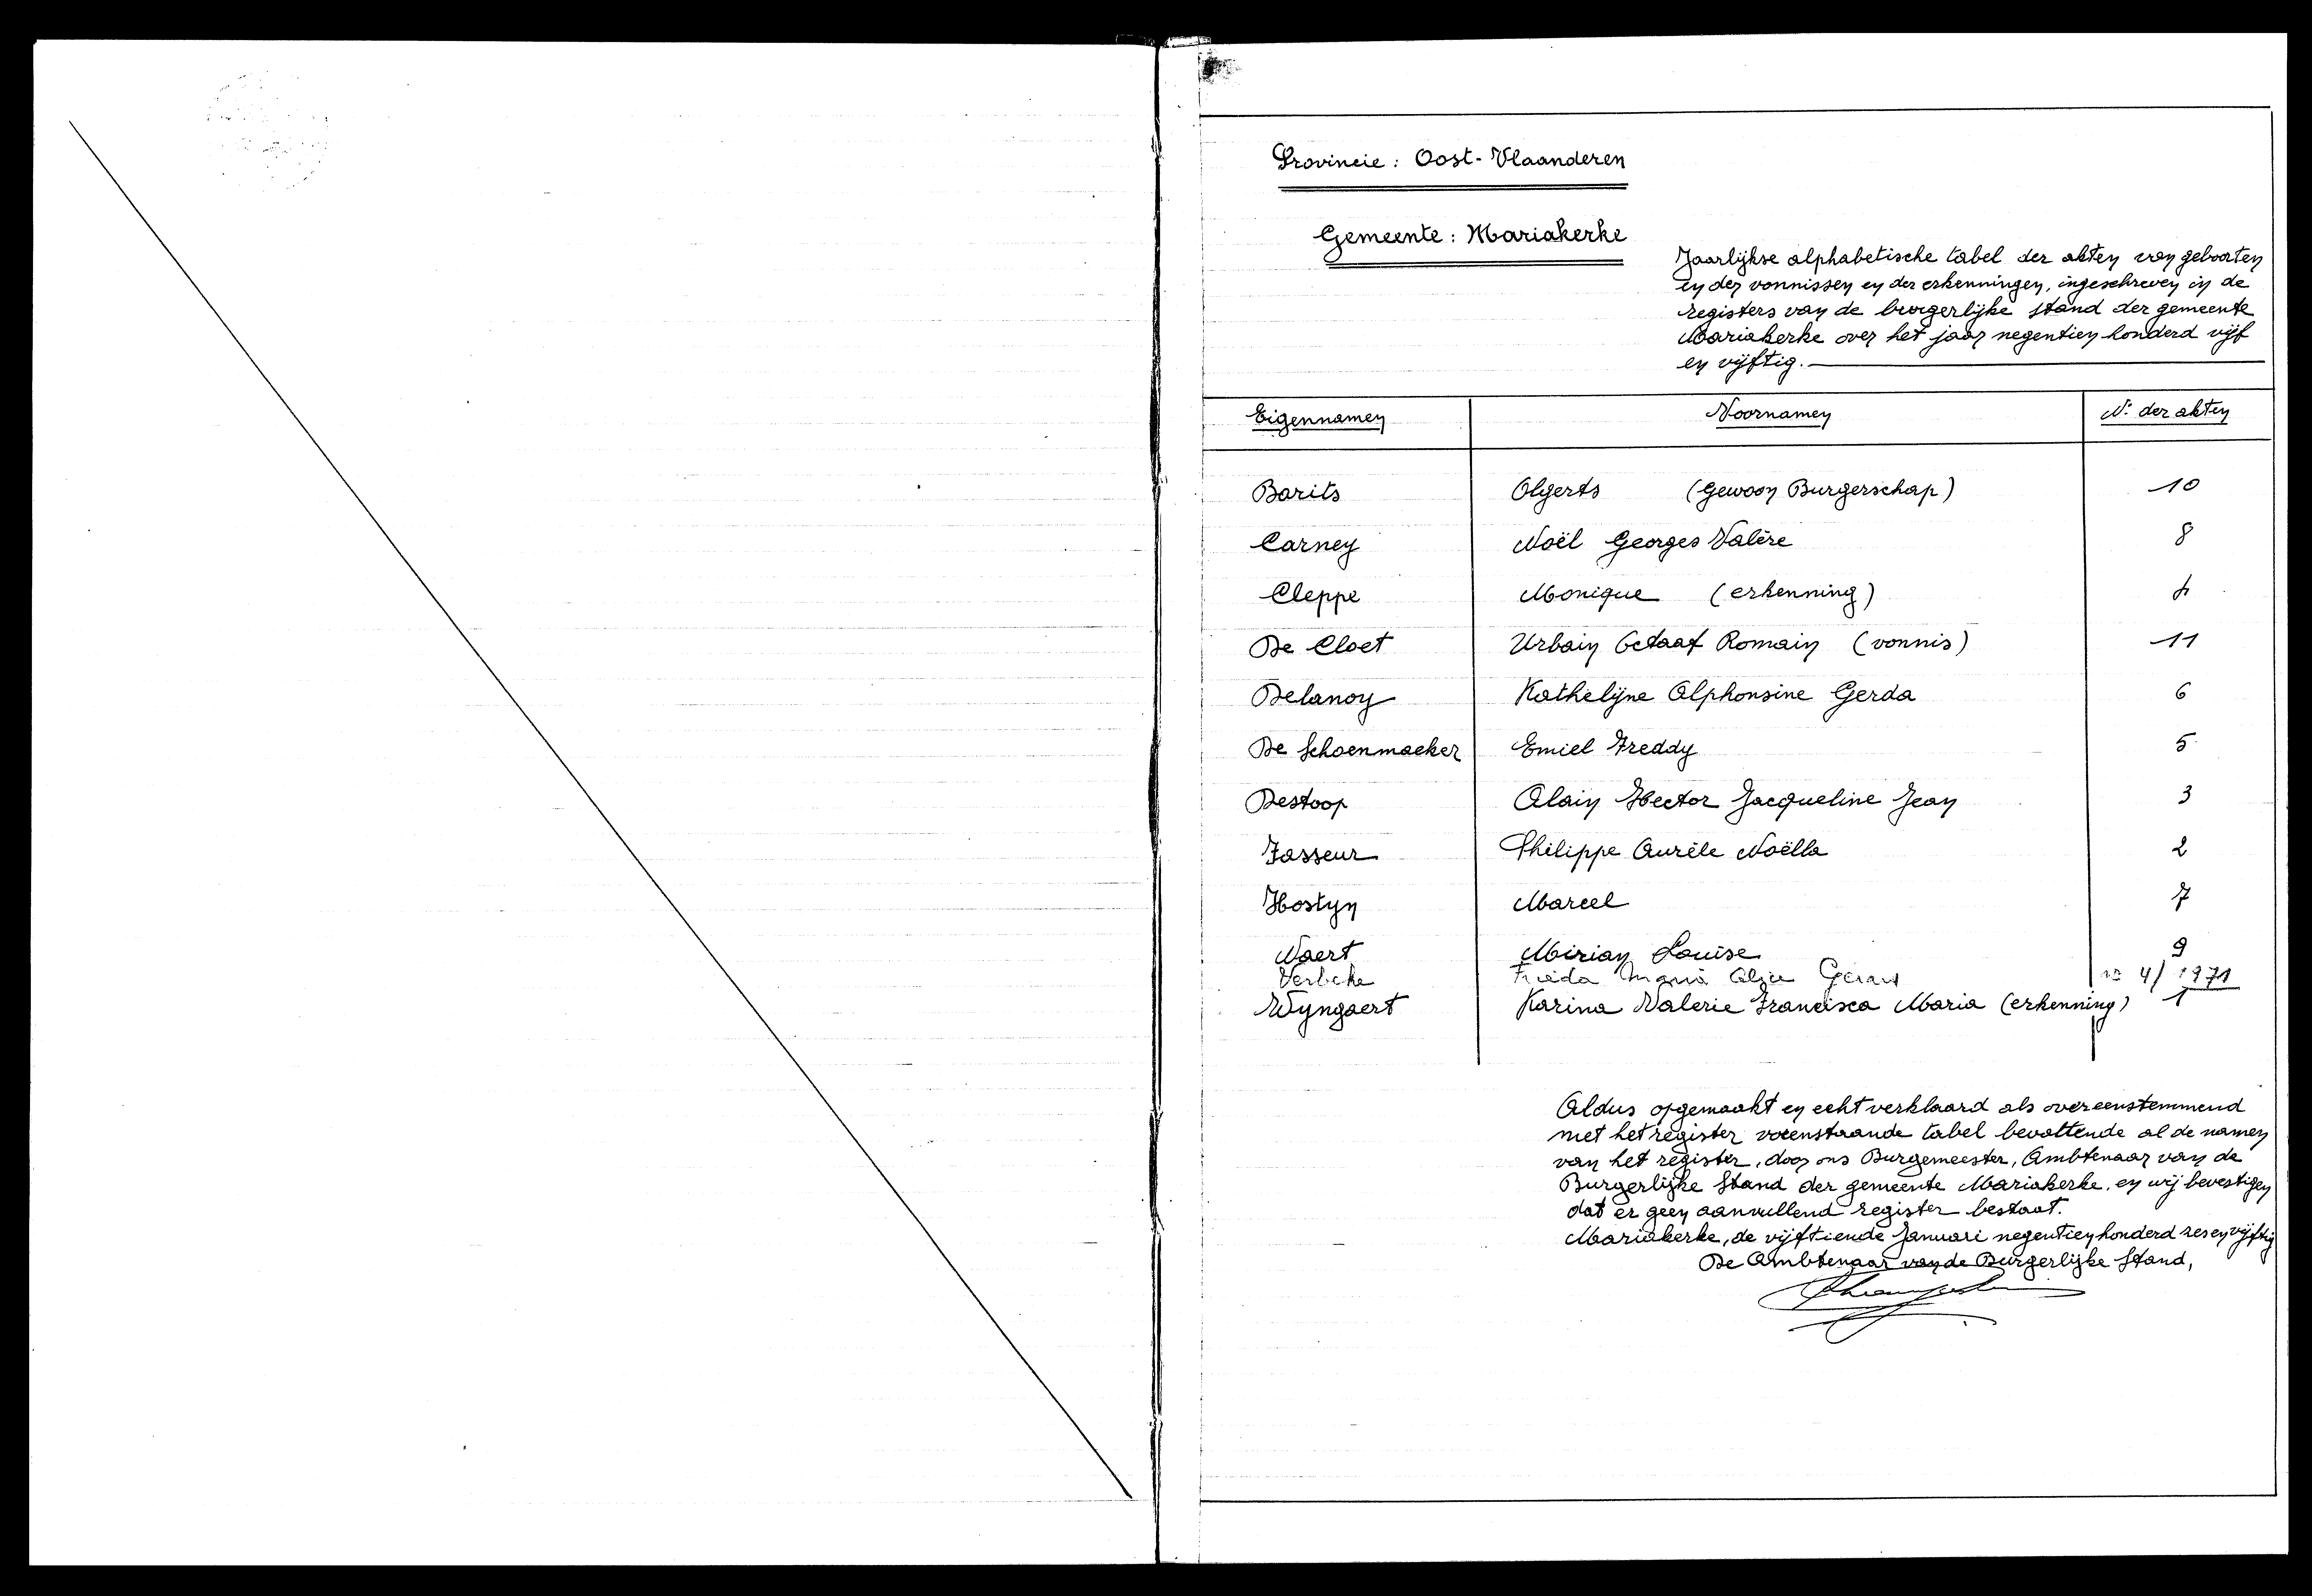 Provincie : Oost-Vlaanderen
Gemeente : Mariakerke
Jaarlijkse alphabetische tabel der akten van geboorten
en der vonnissen en der erkenningen, ingeschreven in de
registers van de burgerlijke stand der gemeente
Mariakerke over het jaar negentien honderd vijf
en vijftig.
Eigennamen Voornamen N° der akten
Barits Olgerts (Gewoon Burgerschap) 10
Carney Noël Georges Valère 8
Cleppe Monique (erkenning) 4
De Cloet Urbain Octaaf Romain (vonnis) 11
Delanoy Kathelijne Alphonsine Gerda 6
De Schoenmaeker Emiel Freddy 5
Destoop Alain Hector Jacqueline Jean 3
Fasseur Philippe Aurèle Noëlla 2
Hostyn Marcel 7
Naert Mirian Louise 9
Verbeke Frieda Maria Gerard n° 4/1971
Wyngaert Karina Valerie Francisca Maria (erkenning) 1
Aldus opgemaakt en echt verklaard als overeenstemmend
met het register voorenstaande tabel bevattende al de namen
van het register, door ons Burgemeester, Ambtenaar van de
Burgerlijke Stand der gemeente Mariakerke, en wij bevestigen
dat er geen aanvullend register bestaat.
Mariakerke, de vijftiende Januari negentien honderd zes en vijftig
De Ambtenaar van de Burgerlijke Stand,